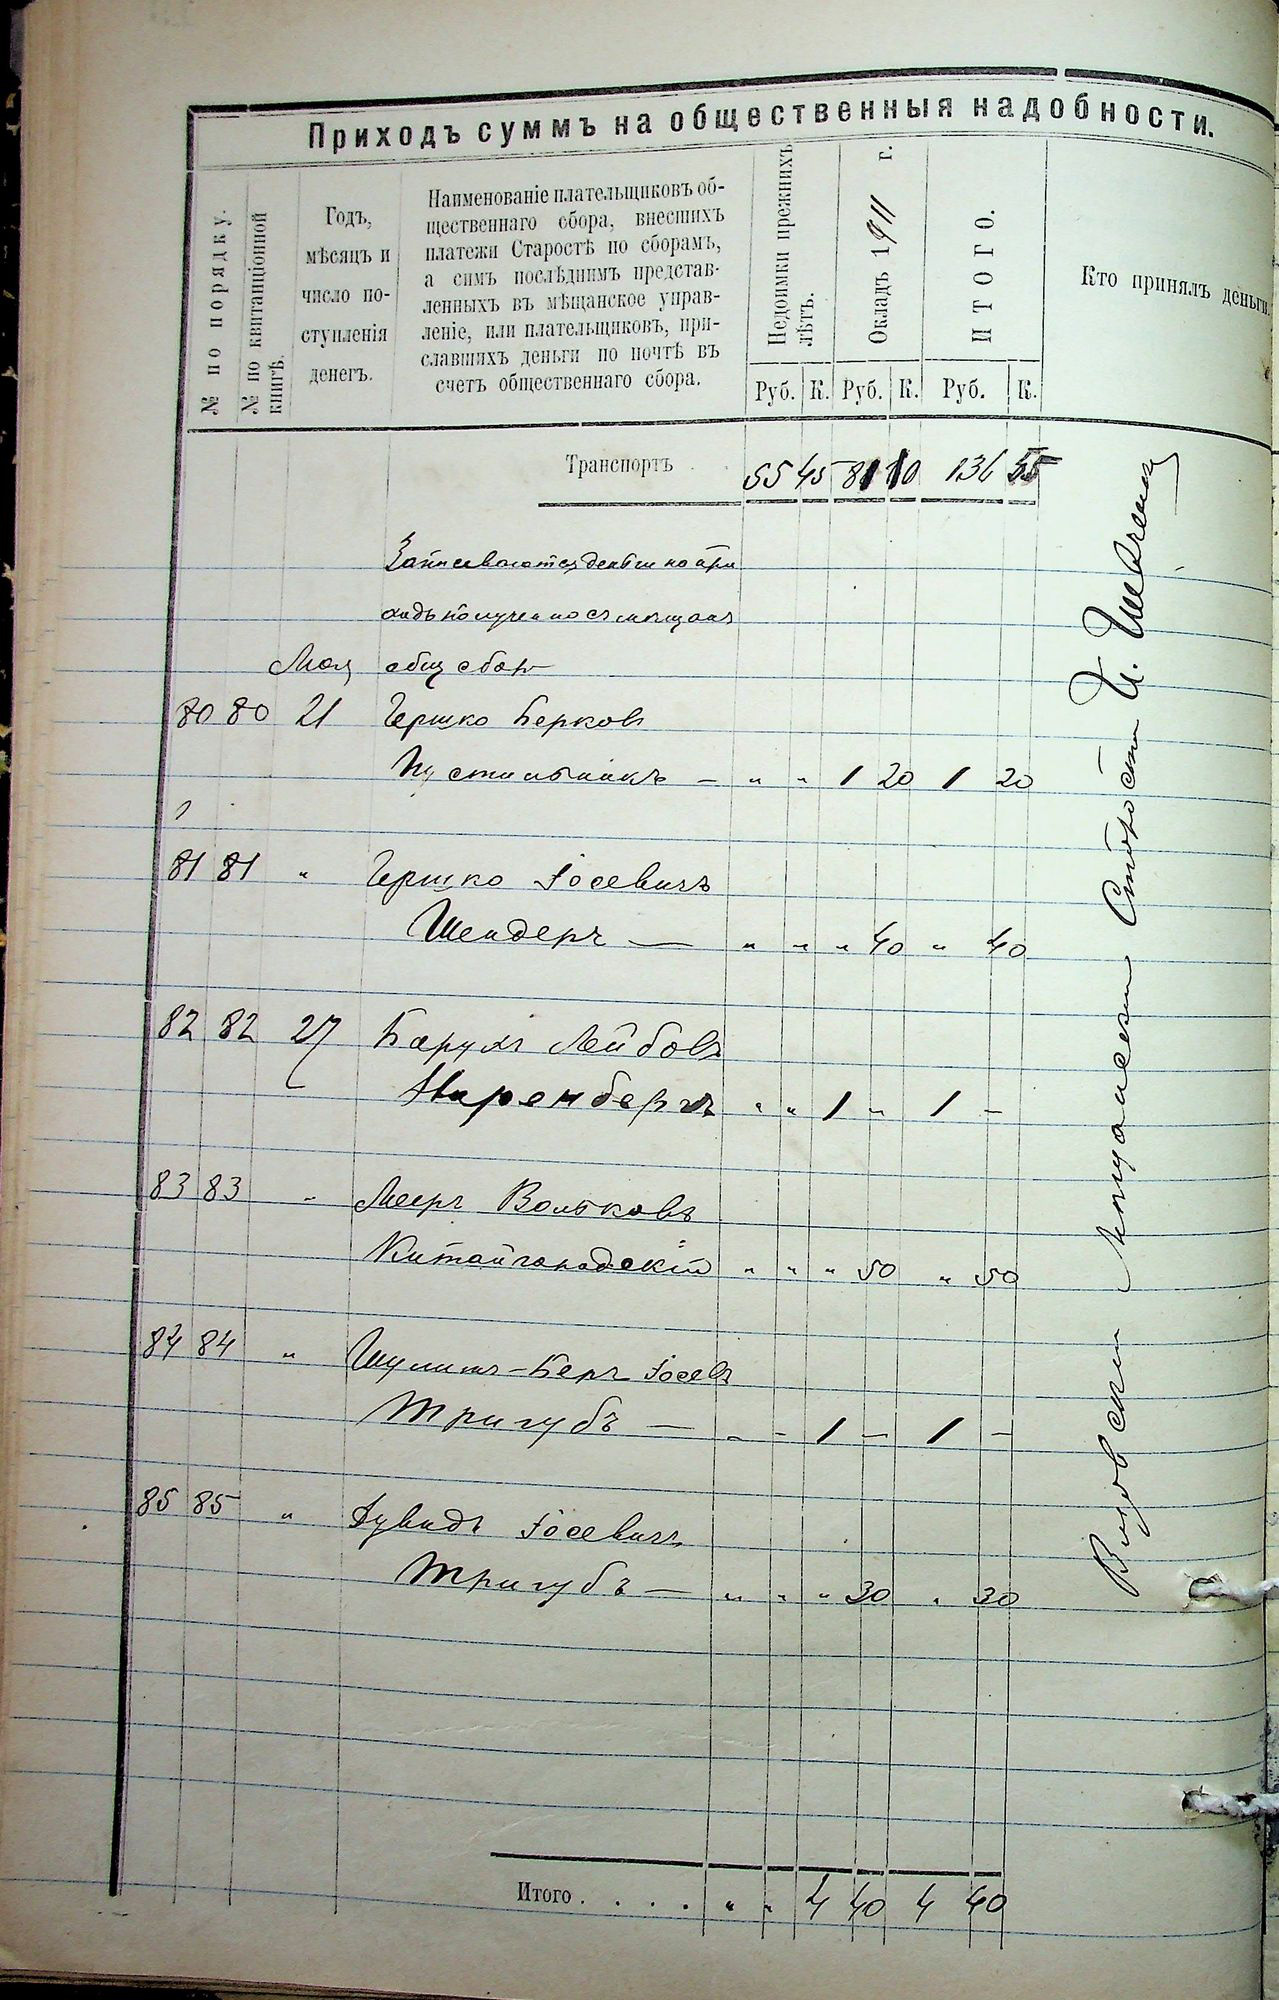 Приходъ суммъ на общественныя надобности.
№ по порядку.
№ по квитанціонной книгѣ.
Годъ,
мѣсяцъ и
число по-
ступленія
денегъ.
Наименованіе плательщиковъ об-
щественнаго сбора, внесшихъ
платежи Старостѣ по сборамъ,
а симъ послѣднимъ представ-
ленныхъ въ мѣщанское управ-
леніе, или плательщиковъ, при-
славшихъ деньги по почтѣ въ
счетъ общественнаго сбора.
Недоимки прежнихъ лѣтъ.
Окладъ 1911 г.
ИТОГО.
Кто принялъ деньги.
Руб. К. Руб. К. Руб. К.
Транспортъ 55 45 81 10 136 55
Записываются деньги на при
ходъ получено съ мѣщанъ
Мая общ сбор
80 80 21 Гершко Берковъ
Пустильникъ — " " 1 20 1 20
81 81 " Гершко Іосевичъ
Шендеръ — " " " 40 " 40
82 82 27 Барухъ Лейбовъ
Ниренбергъ " " 1 " 1 —
83 83 " Мееръ Вольковъ
Китайгородскій " " " 50 " 50
84 84 " Шулимъ-Беръ Іосевъ
Тригубъ — " - 1 — 1 —
85 85 " Дувидъ Іосевичъ
Тригубъ — " " " 30 " 30
Итого . . . . " " 4 40 4 40
мѣщанскій Староста И. Шевченко